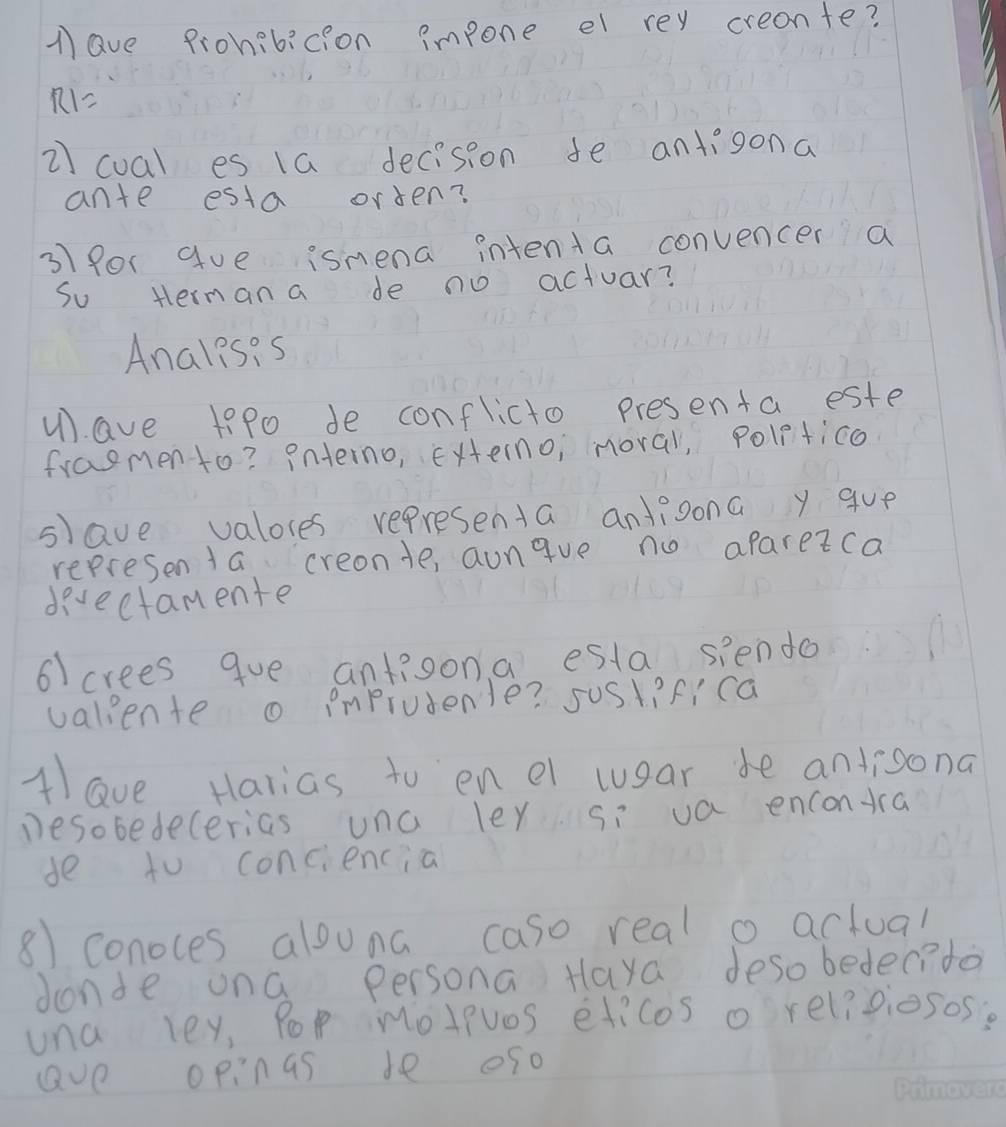 1) Que Prohibicion impone el rey creonte?
R1=
2) cual es la decision de antigona
ante esta orden?
3) Por que ismena intenta convencer a
su Hermana de no actuar?
Analisis
4). Que tipo de conflicto Presenta este
fragmento? interno, Externo, moral, Politico
5) Que valores representa antigona y que
representa creonte, aunque no aparezca
directamente
6) crees que antigona esta siendo
valiente o imprudente? justifica
7) Que Harias tu en el lugar de antigona
Desobedecerias una ley si va encontra
de tu conciencia
8) conoces alguna caso real o actual
donde una Persona Haya desobedecido
una ley, Por motivos eticos o religiosos.
Que opinas de eso
Primavera